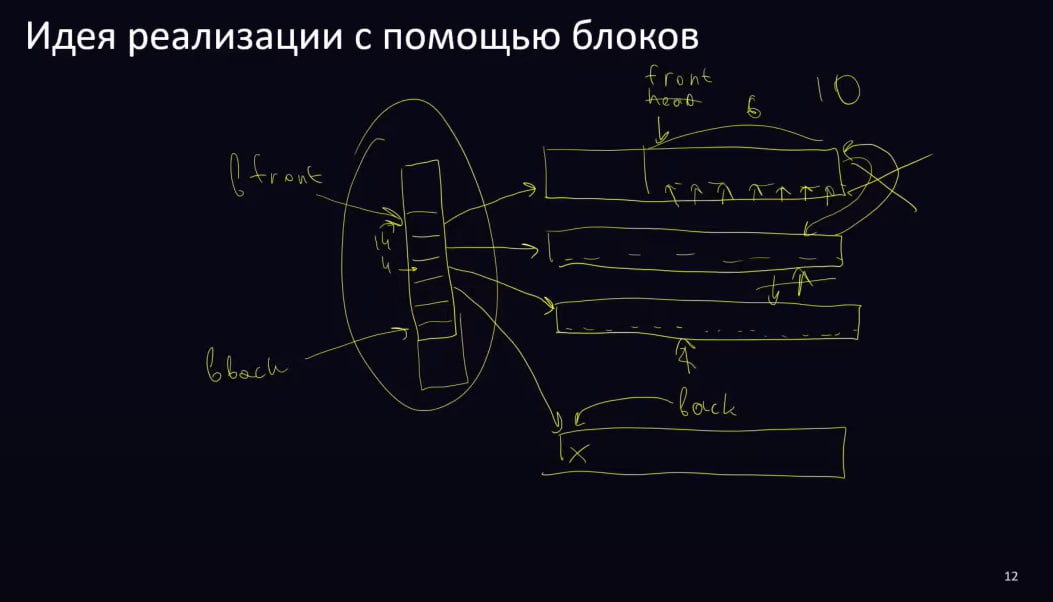 Идея реализации с помощью блоков
front
head
6
10
bfront
14
4
bback
back
x
12